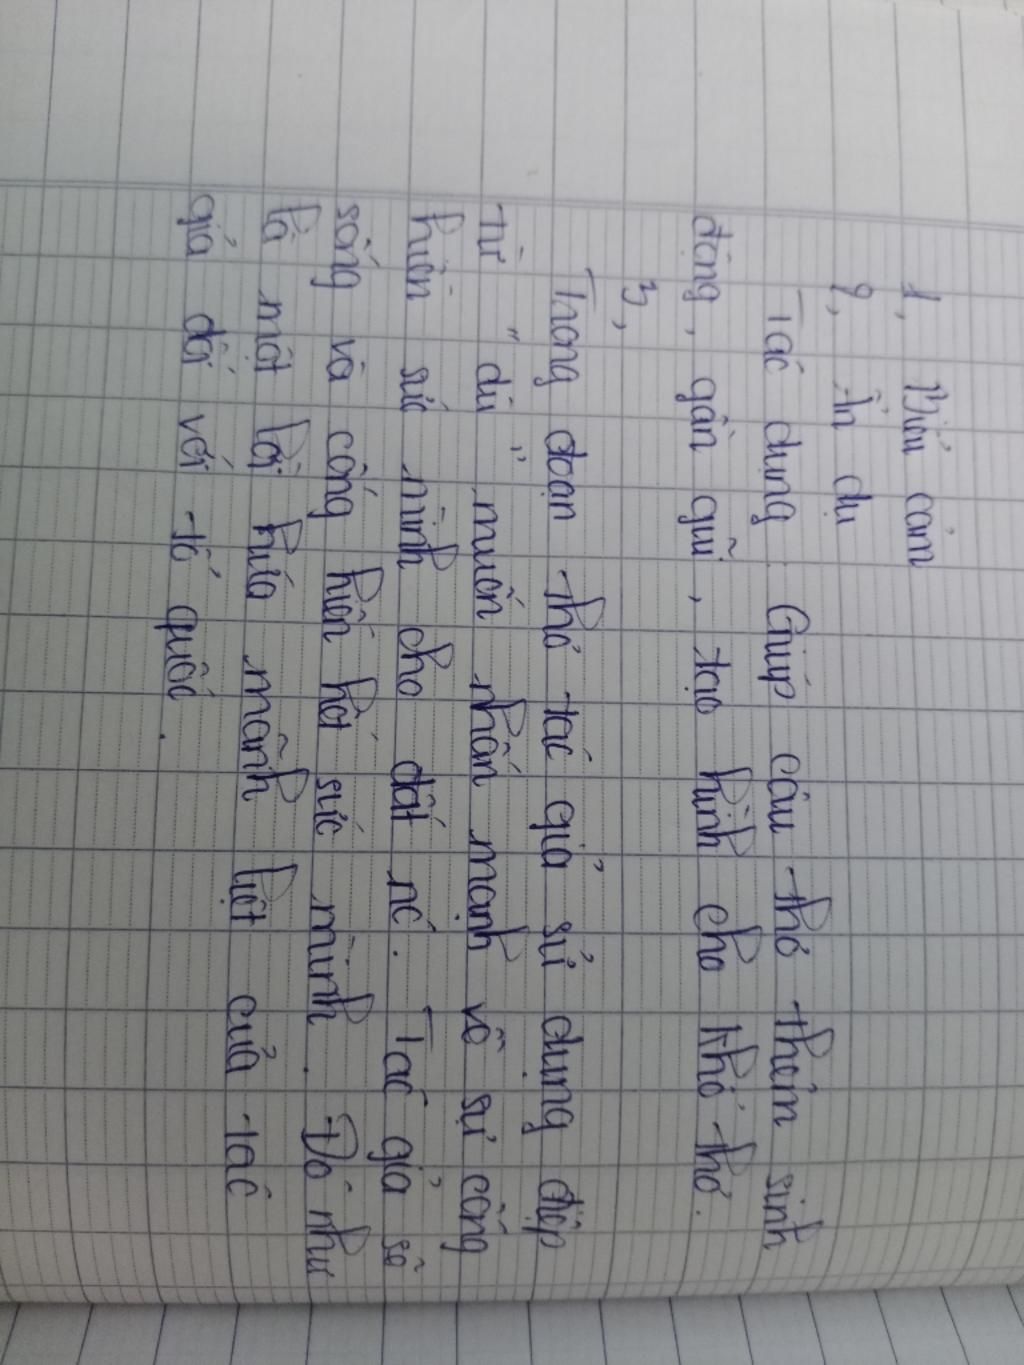 1, Biểu cảm
2, Ẩn dụ
Tác dụng: Giúp câu thơ thêm sinh
động, gần gũi, tạo hình cho khổ thơ.
3,
Trong đoạn thơ tác giả sử dụng điệp
từ "dù" muốn nhấn mạnh về sự cống
hiến sức mình cho đất nc. Tác giả sẽ
sống và cống hiến hết sức mình. Đó như
là một lời hứa mãnh liệt của tác
giả đối với tổ quốc.